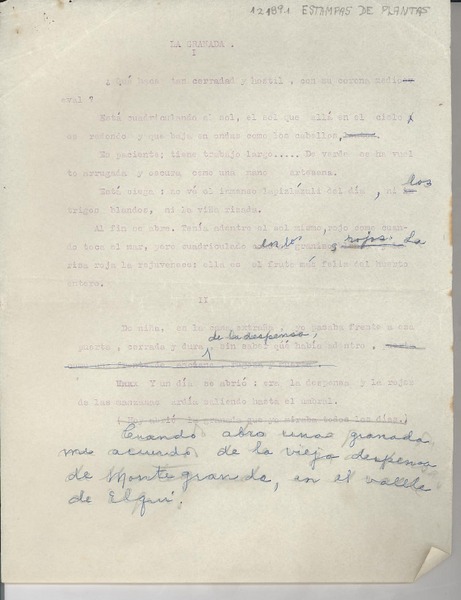 121891 ESTAMPAS DE PLANTAS
LA GRANADA.
I
¿Qué hace tan cerrada y hostil, con su corona medio-
eval?
Está cuadriculando el sol, el sol que allá en el cielo
es redondo y que baja en ondas como los cabellos,
Es paciente; tiene trabajo largo..... De verde se ha vuel
to arrugada y oscura como una mano artesana.
Está ciega: no vé el inmenso lapizlázuli del día, ni los
trigos blandos, ni la viña rizada.
Al fin se abre. Tenía adentro el sol mismo, rojo como cuan-
do toca el mar, pero cuadriculado en los rojos. La
risa roja la rejuvenece: ella es el fruto más feliz del huerto
entero.
II
De niña, en la casa extraña, yo pasaba frente a esa
puerta de la despensa, cerrada y dura, sin saber qué había adentro.
Y un día se abrió: era la despensa y lo rojo
de las manzanas salió hasta el umbral.
(Hoy abrió la granada que yo miraba todos los días.)
Cuando abro una granada
me acuerdo de la vieja despensa
de Montegrande, en el valle
de Elqui.